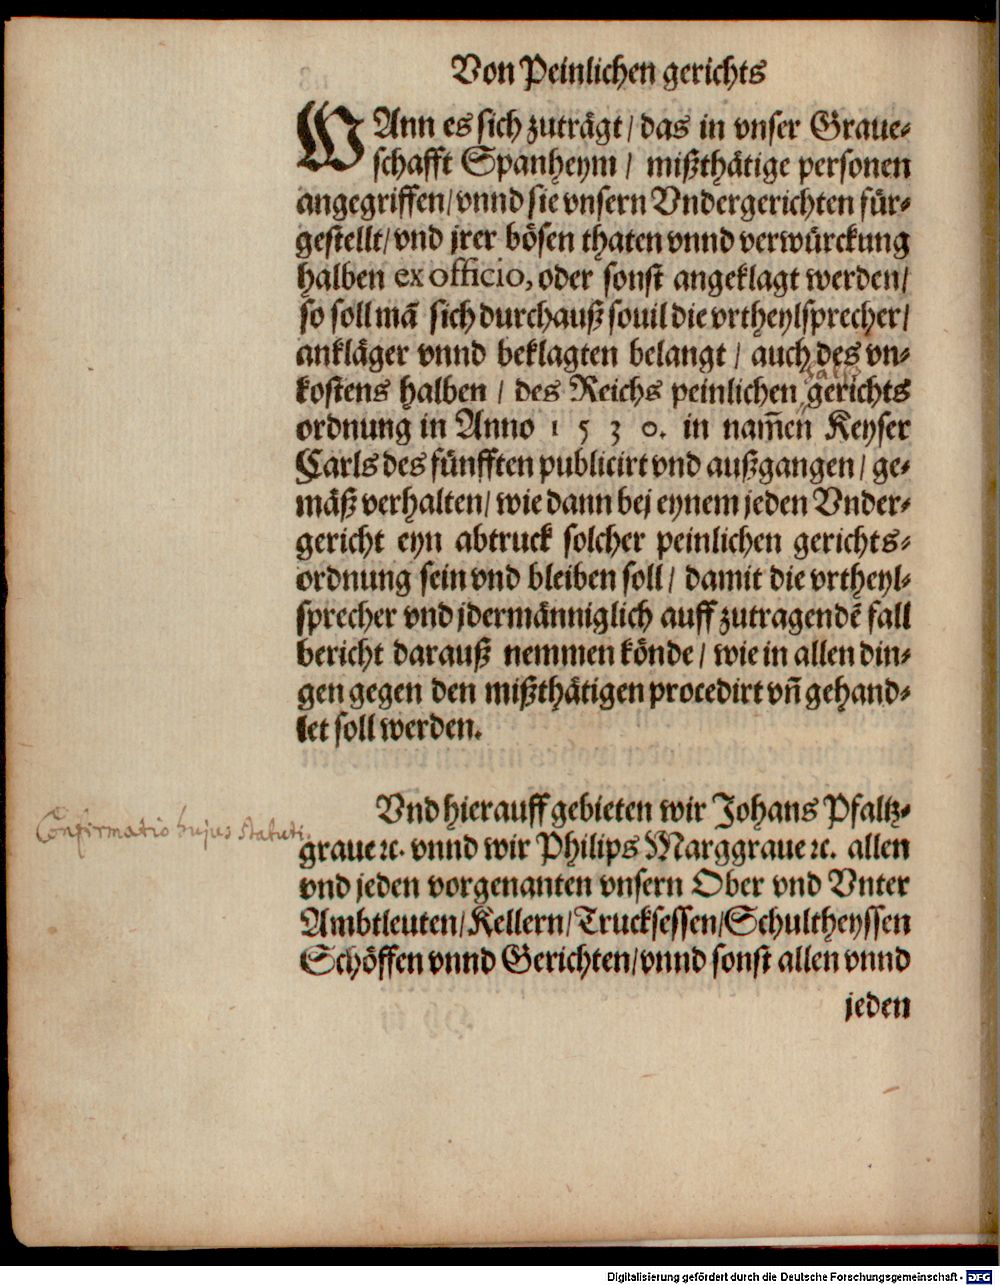 Von Peinlichen gerichts
WAnn es sich zuträgt / das in vnser Graue⸗
schafft Spanheym / mißthätige personen
angegriffen / vnnd sie vnsern Vndergerichten für⸗
gestellt / vnd jrer bösen thaten vnnd verwürckung
halben ex officio, oder sonst angeklagt werden /
so soll mã sich durchauß souil die vrtheylsprecher /
ankläger vnnd beklagten belangt / auch des vn⸗
kostens halben / des Reichs peinlichen gerichts
ordnung in Anno 1530. in nam̃en Keyser
Carls des fünfften publicirt vnd außgangen / ge⸗
mäß verhalten / wie dann bej eynem jeden Vnder⸗
gericht eyn abtruck solcher peinlichen gerichts⸗
ordnung sein vnd bleiben soll / damit die vrtheyl⸗
sprecher vnd jdermänniglich auff zutragendẽ fall
bericht darauß nemmen könde / wie in allen din⸗
gen gegen den mißthätigen procedirt vñ gehand⸗
let soll werden.
Vnd hierauff gebieten wir Johans Pfaltz⸗
Confirmatio hujus statuti.
graue ꝛc. vnnd wir Philips Marggraue ꝛc. allen
vnd jeden vorgenanten vnsern Ober vnd Vnter
Ambtleuten / Kellern / Trucksessen / Schultheyssen
Schöffen vnnd Gerichten / vnnd sonst allen vnnd
jeden
Digitalisierung gefördert durch die Deutsche Forschungsgemeinschaft - DFG